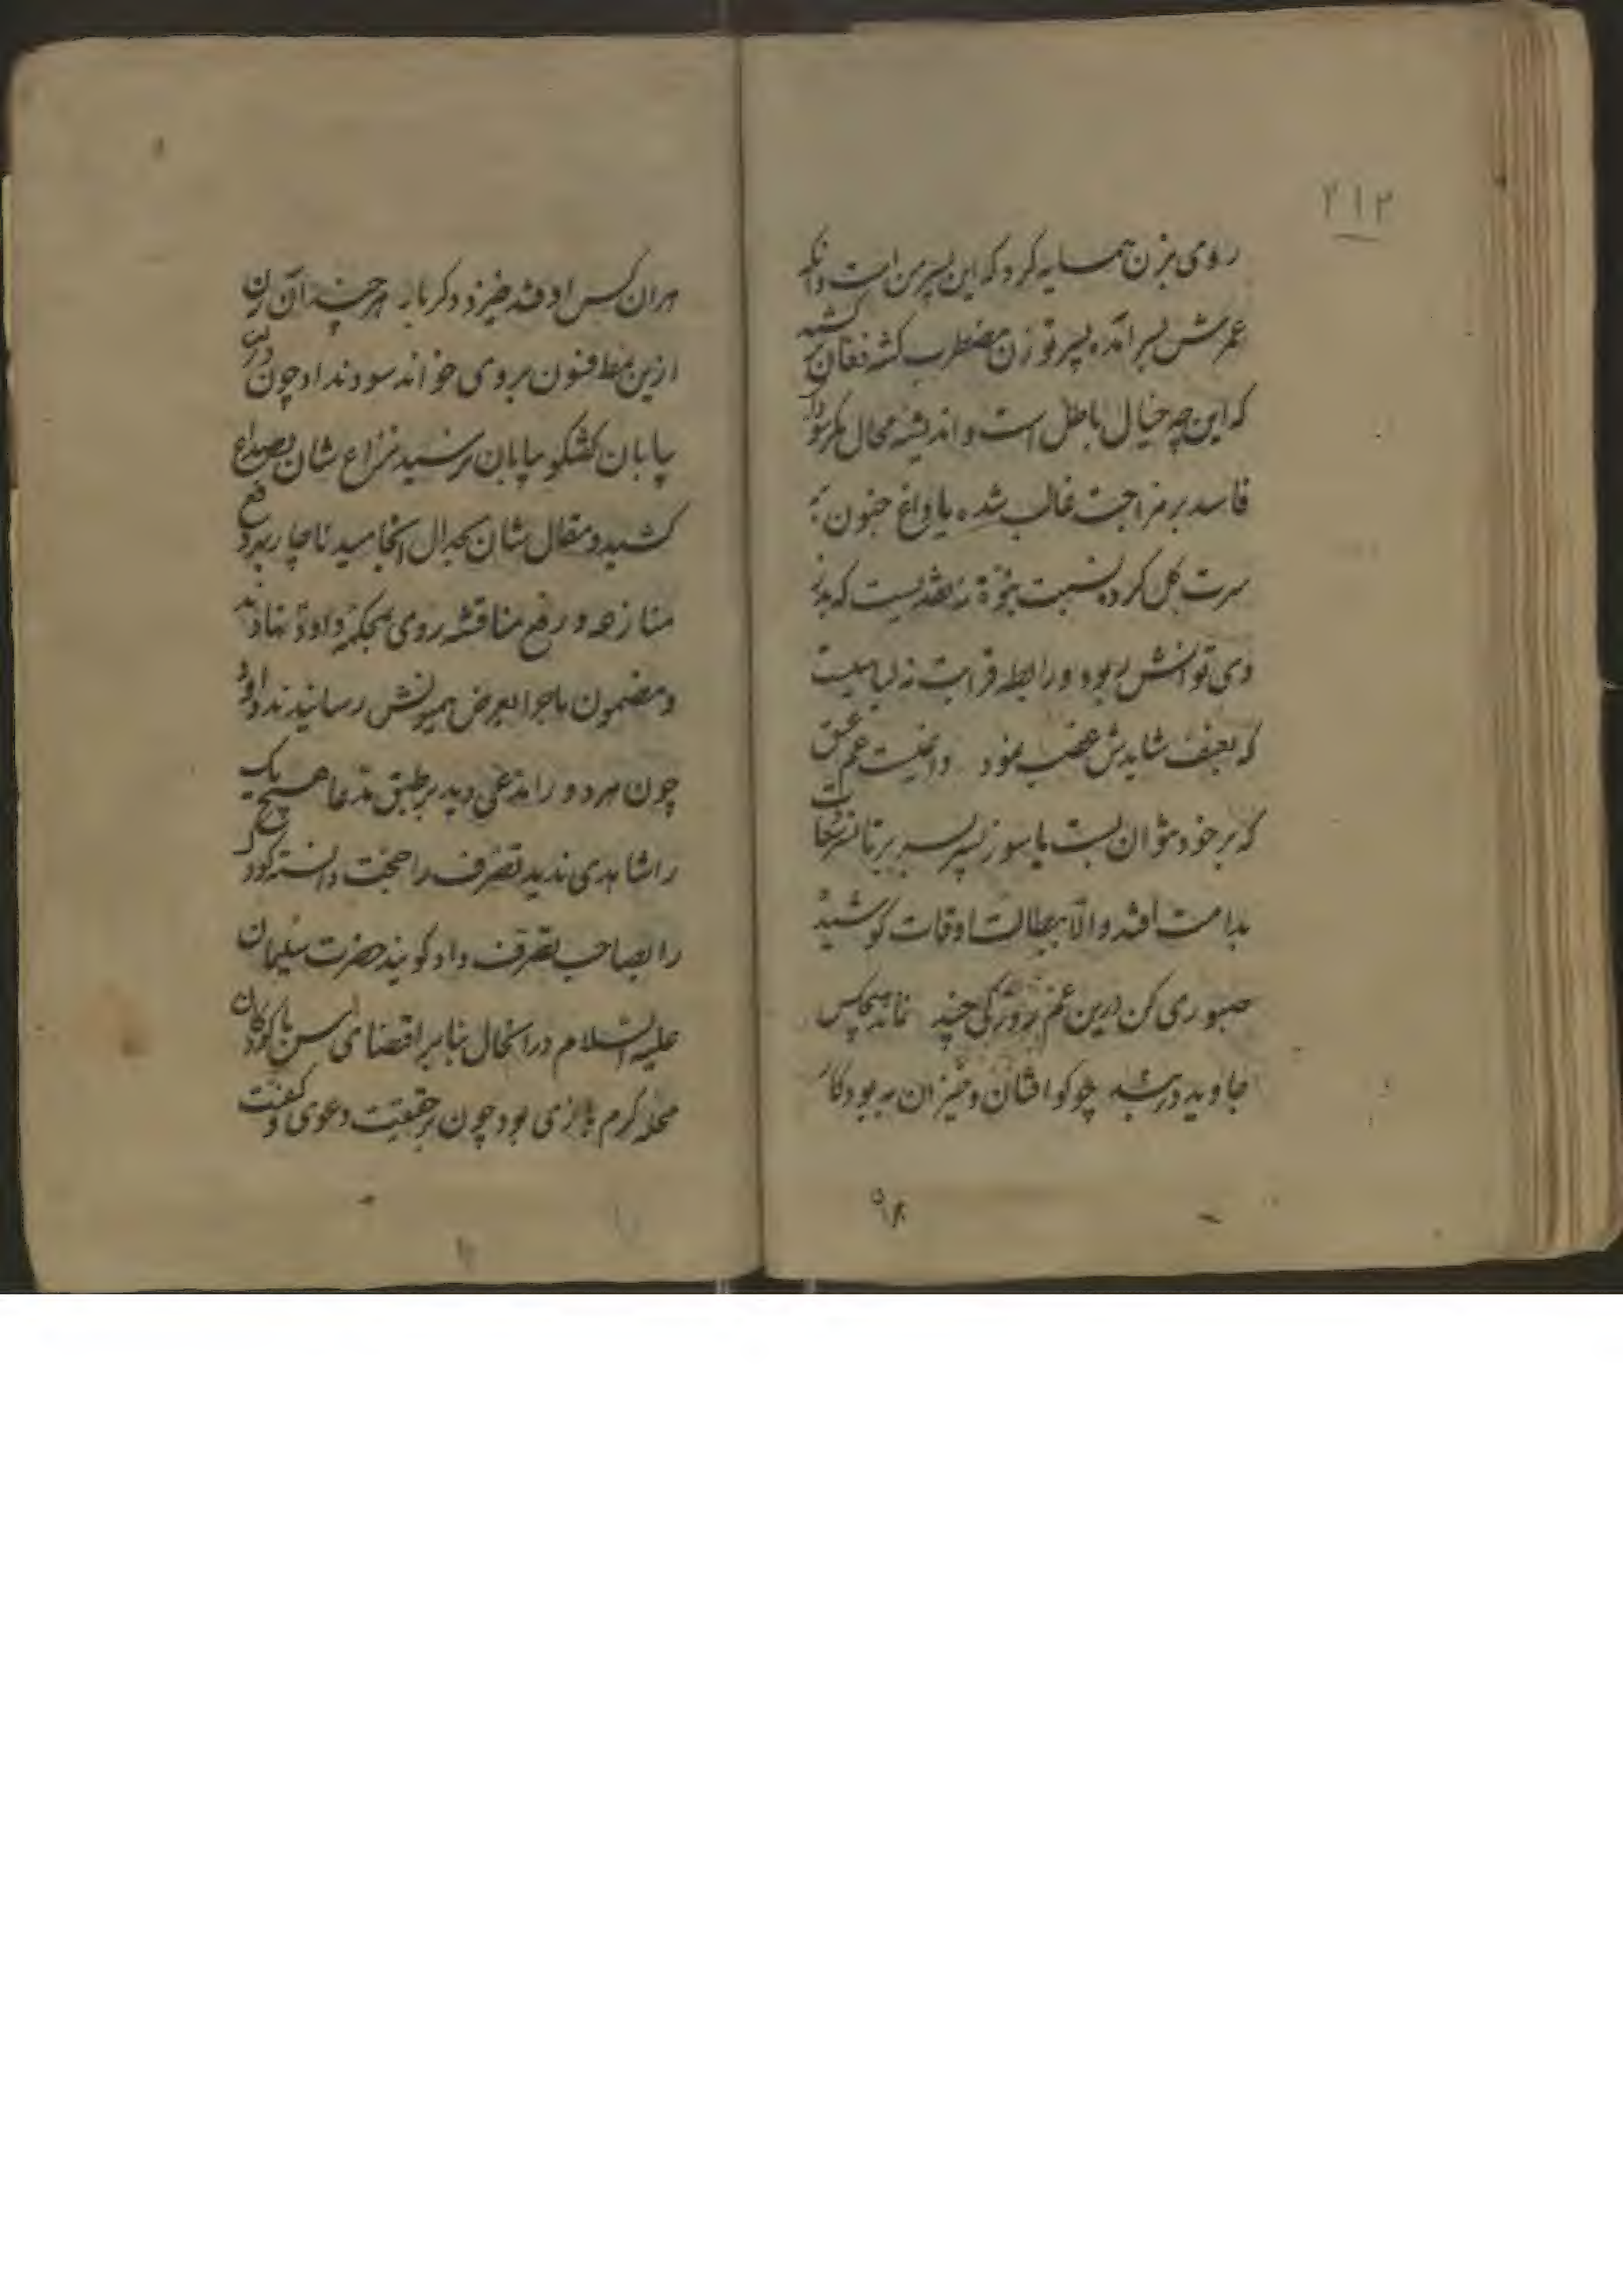 ۲۱۲
روی بزن همسایه کرد که این پسر من است وانکه
عمرش بسر آمده پسر تو زن مضطرب کشته فغان کشید
که این چه خیال باطل است و اندیشه محال مکر سودا
فاسد بر مزاجت غالب شده یا داغ جنون بر
سرت کل کرده نسبت بنوة نه نقدیست که بدز
دی توانش ربود و رابطه قرابت نه لباسیست
که بعنف شایدش غصب نمود دانیست غم عشق
که بر خود بتوان بست یا سوز پسر
بدامت افتد والا ببطالت اوقات کوشید
صبوری کن درین غم روزکی چند نماند هیچکس
جاوید دربند چو کو افتان و خیزان به بود کار
هران کس اوفتد خیزد دکر بار هر چند آن زن
ازین نمط فنون بروی خواند سود نداد چون درین
پایان کفتکو بپایان نرسید نزاع شان بصداع
کشید و مقال شان بجدال انجامید ناچار بهر دفع
منازعه و رفع مناقشه روی بمحکمه داود نهادند
و مضمون ماجرا بعرض همیونش رسانیدند داود
چون هر دو را مدعی دید بر طبق مدعا هیچ یک
را شاهدی ندید تصرف را حجت دانسته کودک
را بصاحب تصرف داد کویند حضرت سلیمان
علیه السلام در آنحال بنابر اقتضای سن با کودکان
محله کرم بازی بود چون بر حقیقت دعوی